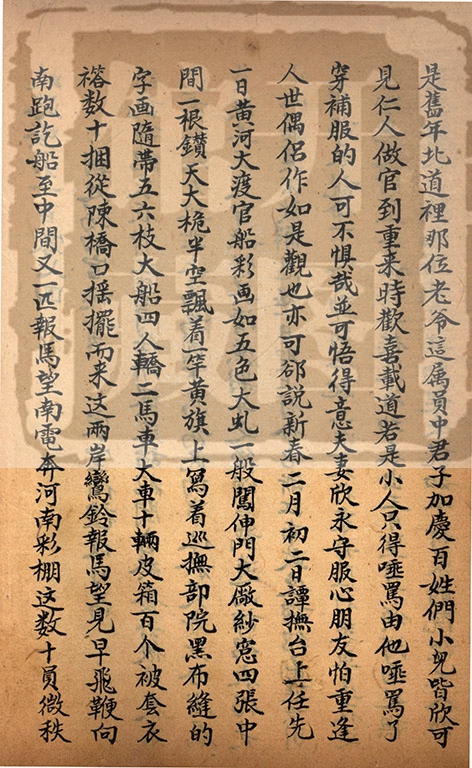 是舊年北道裡那位老爷這属員中君子加慶百姓們小兒皆欣可
見仁人做官到重来時歡喜載道若是小人只得唾罵由他唾罵了
穿補服的人可不惧哉並可悟得意夫妻欣永守服心朋友怕重逢
人世偶侣作如是觀也亦可郤說新春二月初二日譚撫台上任先
一日黄河大渡官船彩画如五色大虬一般闖伸門大厰紗窓四張中
間一根鑚天大桅半空飄着一竿黄旗上寫着巡撫部院黑布縫的
字画隨帶五六枝大船四人轎二馬車大車十輛皮箱百个被套衣
褡数十捆從陳橋口摇擺而来这兩岸鸞鈴報馬望見早飛鞭向
南跑訖船至中間又一匹報馬望南電奔河南彩棚这数十員微秩